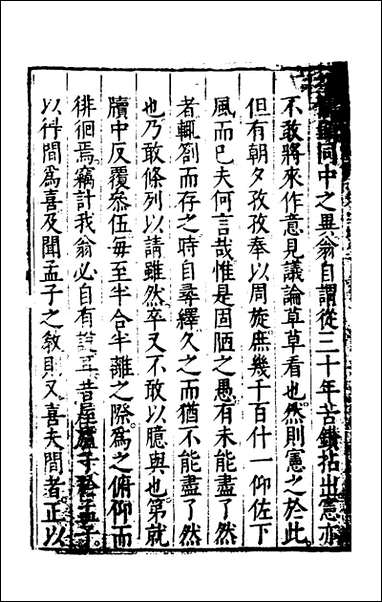 同中之異翁自謂從三十年苦鑽拈出憲亦
不敢將來作意見議論草草看也然則憲之於此
但有朝夕孜孜奉以周旋庶幾千百什一仰佐下
風而巳夫何言哉惟是固陋之愚有未能盡了然
者輒劄而存之時自尋繹久之而猶不能盡了然
也乃敢條列以請雖然卒又不敢以臆與也第就
牘中反覆叅伍每至半合半離之際為之俯仰而
徘徊焉竊計我翁必自有說耳昔屋廬子於孟子
以得間為喜及聞孟子之教則又喜夫間者正以